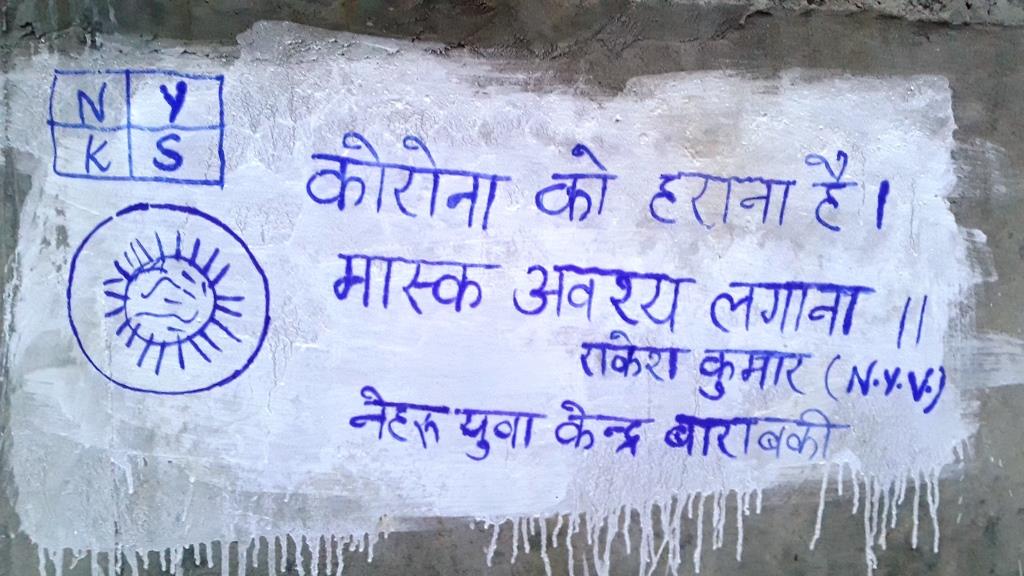 N Y
K S
कोरोना को हराना है।
मास्क अवश्य लगाना ||
राकेश कुमार (N.Y.V.)
नेहरू युवा केन्द्र बाराबकी